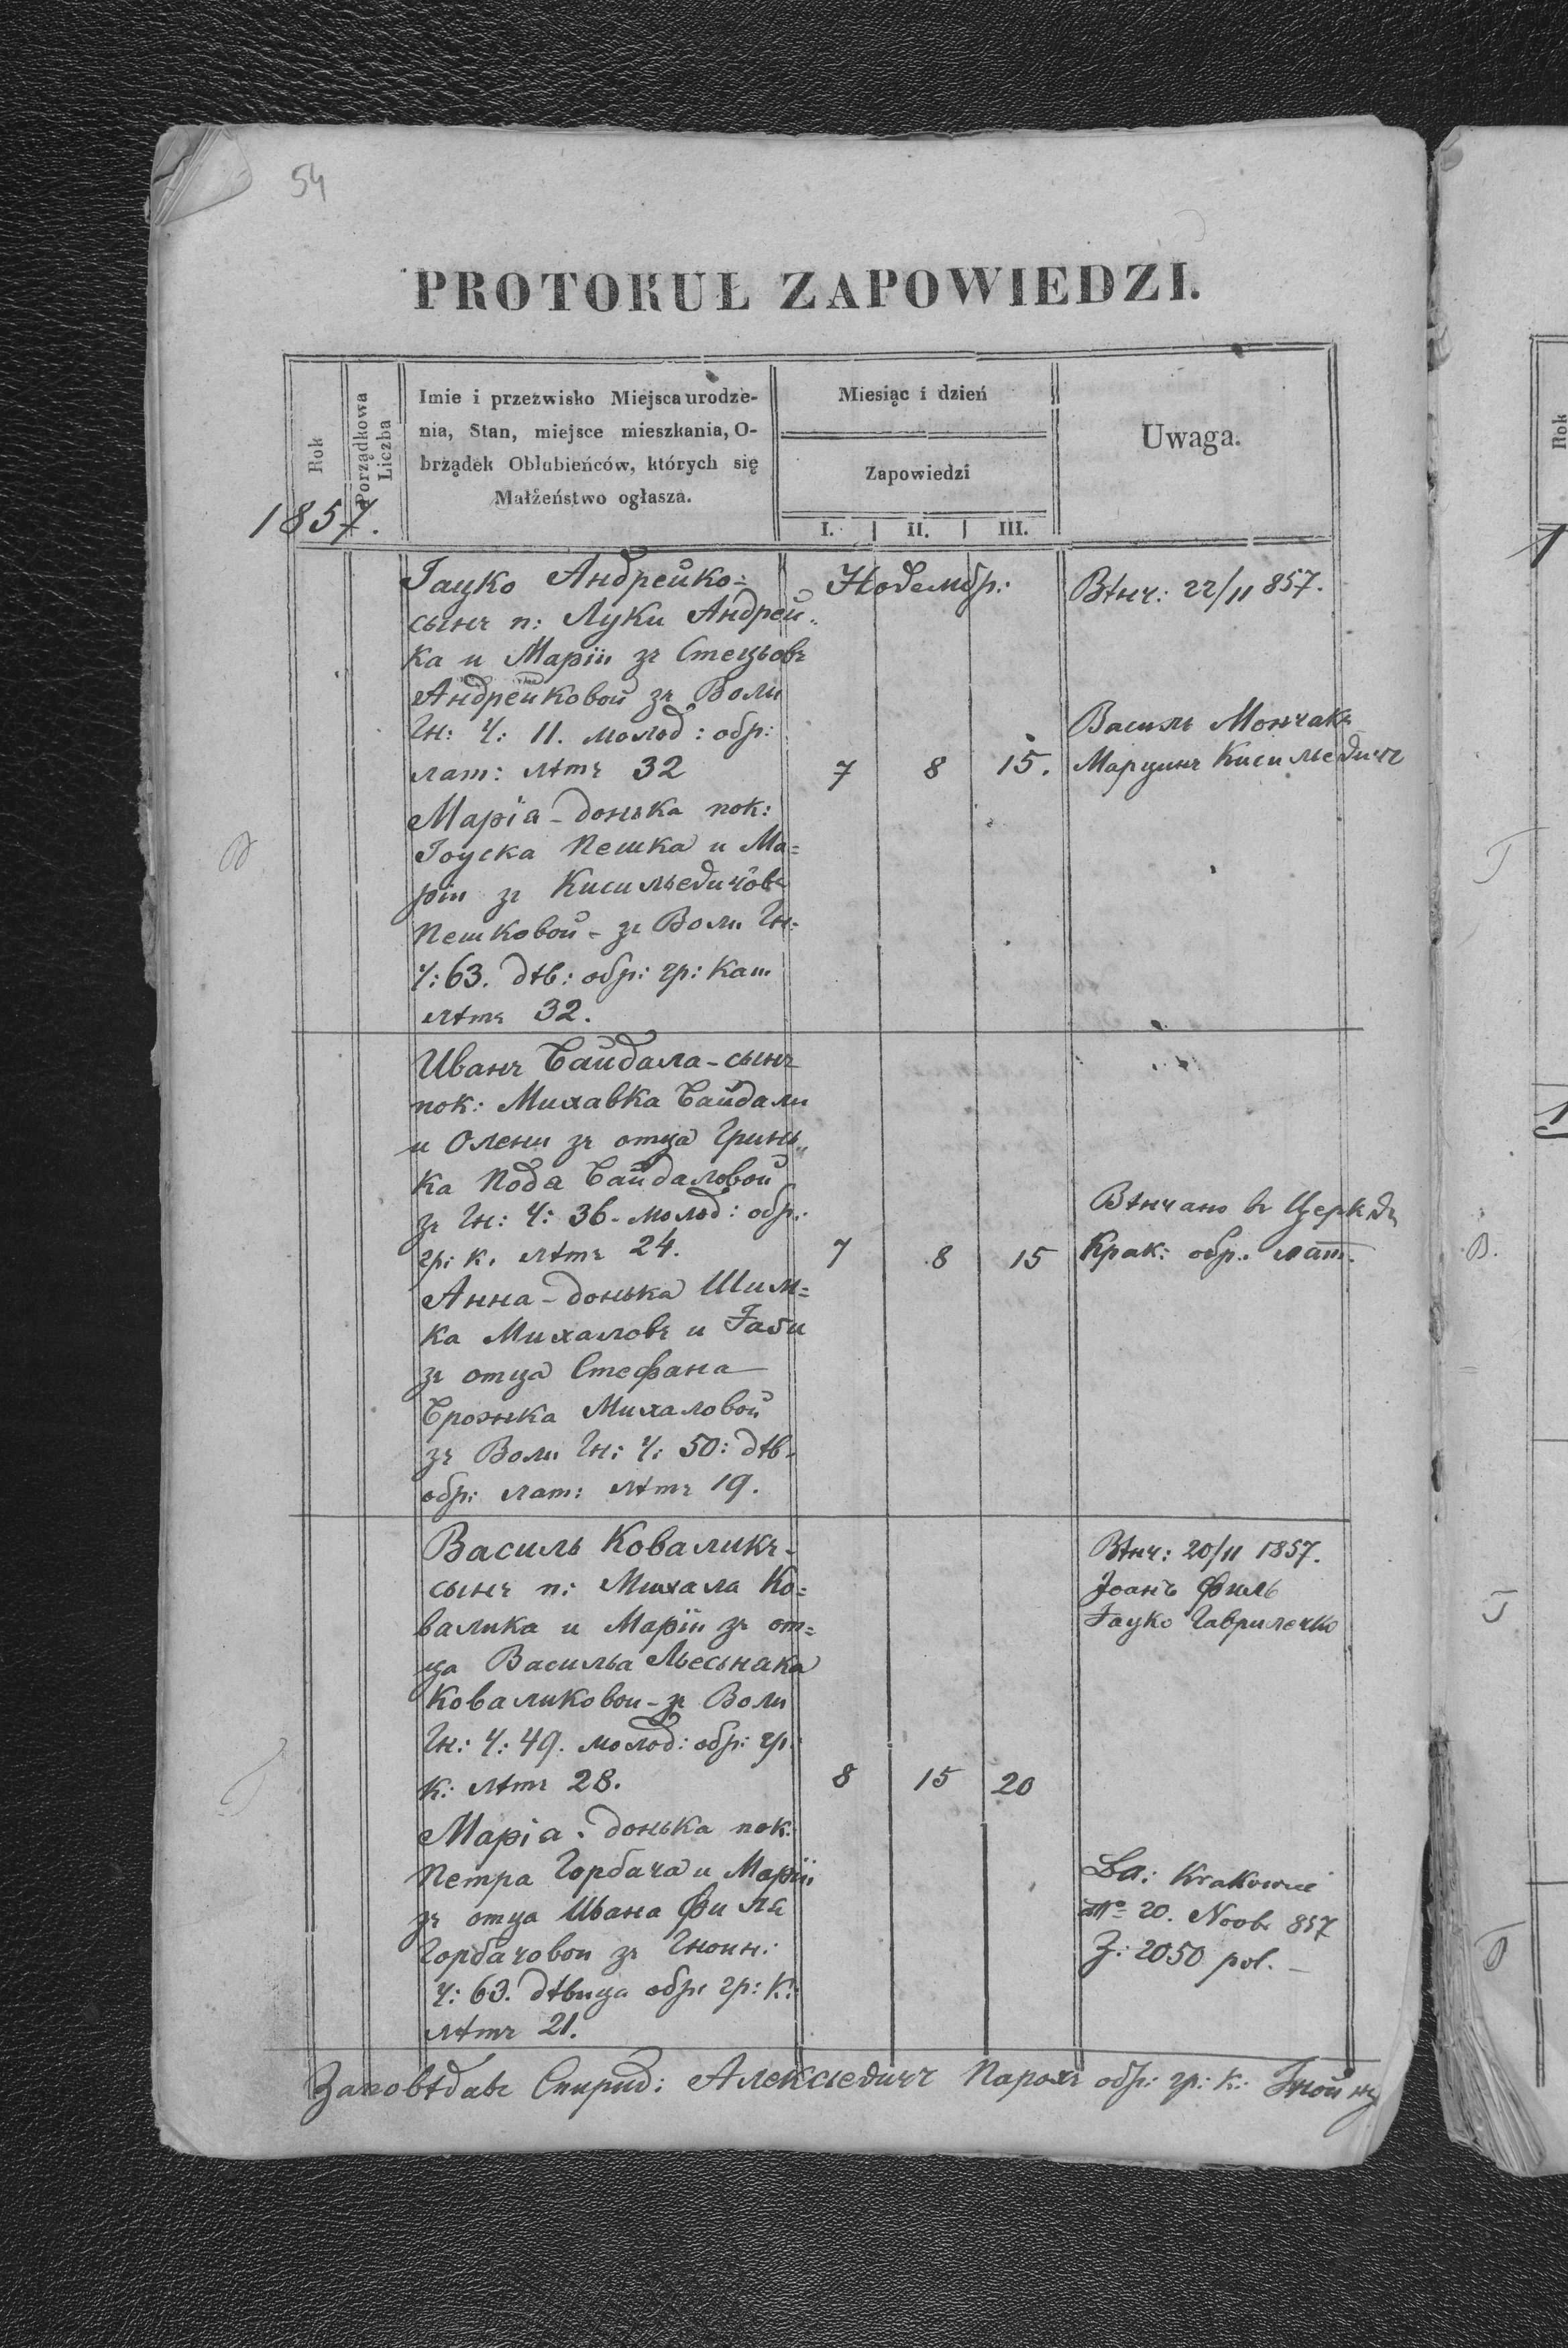 54
PROTOKUŁ ZAPOWIEDZI.
Rok
Porządkowa Liczba
Imie i przezwisko Miejsca urodze-
nia, Stan, miejsce mieszkania, O-
brządek Oblubieńców, których się
Małżeństwo ogłasza.
Miesiąc i dzień
Zapowiedzi
I. II. III.
Uwaga.
1857.
Новембр:
Гацко Андрейко=
сынъ п: Луки Андрей„
ка и Маріи зъ Стецьовъ
Андрейковой зъ Воли
Гн: Ч: 11. молод: обр:
лат: лѣтъ 32
7 8 15.
Вѣнч: 22/11 857.
Василь Мончакъ
Марцинъ Кисильевичъ
Марія - донька пок:
Іоуска Пешка и Ма=
ріи зъ Кисильевичôвъ
Пешковой - зъ Воли Гн:
Ч: 63. дѣв: обр: гр: кат
лѣтъ 32.
Иванъ Байдала - сынъ
пок: Михавка Байдали
и Олени зъ отца Гринь„
ка Пода Байдаловой
зъ Гн: Ч: 36 - молод: обр:
гр: к. лѣтъ 24.
7 8 15
Вѣнчано въ Церквѣ
Крак: обр. лат.
Анна - донька Шим=
ка Михаловъ и Габи
зъ отца Стефана
Брожка Михаловой
зъ Воли Гн: Ч: 50: дѣв.
обр: лат: лѣтъ 19.
Василь Коваликъ -
сынъ п: Михала Ко=
валика и Маріи зъ от=
ца Василья Льесьнака
Коваликовои - зъ Воли
Гн: Ч: 49. молод: обр: гр:
к: лѣтъ 28.
8 15 20
Вѣнч: 20/11 1857.
Іоанъ Филь
Гацко Гаврилечко
Марія - донька пок:
Петра Горбача и Маріи
зъ отца Ивана Филя
Горбачовои зъ Гноин:
Ч: 63. дѣвица обр: гр: к:
лѣтъ 21.
Krakowie
20. Novbr 857
Z: 2050 pol. -
Заповѣдавъ Спирид: Алексіевичъ Парохъ обр: гр: к: Гнойнц
Rok